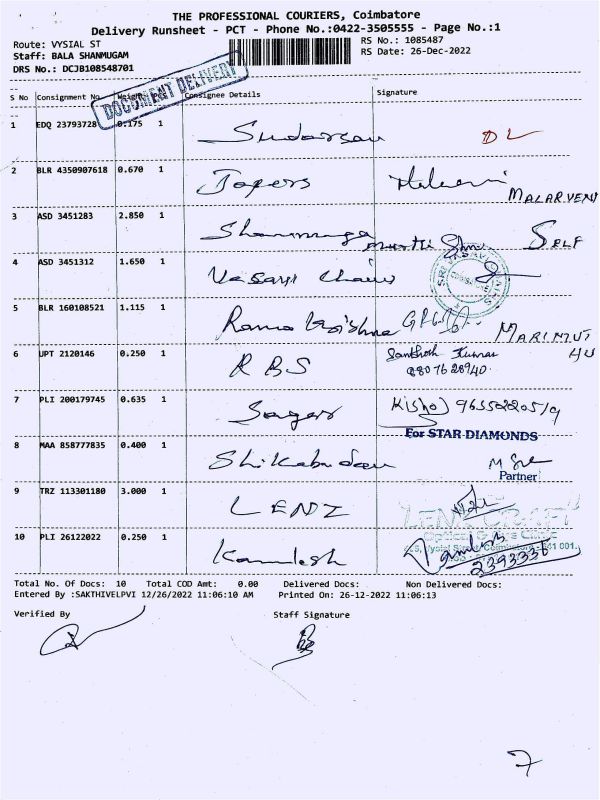 THE PROFESSIONAL COURIERS, Coimbatore
Delivery Runsheet - PCT - Phone No.:0422-3505555 - Page No.:1
Route: VYSIAL ST
RS No.: 1085487
Staff: BALA SHANMUGAM
RS Date: 26-Dec-2022
DRS No.: DCJB108548701
DOCUMENT DELIVERY
S No Consignment No. Weight Consignee Details Signature
1 EDQ 23793728 0.175 1 Sudarsan DL
2 BLR 4350907618 0.670 1 MALARVENI
3 ASD 3451283 2.850 1 Shanmuga murthi SELF
4 ASD 3451312 1.650 1
5 BLR 160108521 1.115 1 Rama Krishna MARIMUTHU
6 UPT 2120146 0.250 1 RBS Santhosh Kumar
8807628940.
7 PLI 200179745 0.635 1 Sagar
For STAR DIAMONDS
8 MAA 858777835 0.400 1
Partner
9 TRZ 113301180 3.000 1 LENZ
10 PLI 26122022 0.250 1 Kamlesh 2393336
Total No. Of Docs: 10 Total COD Amt: 0.00 Delivered Docs: Non Delivered Docs:
Entered By :SAKTHIVELPVI 12/26/2022 11:06:10 AM Printed On: 26-12-2022 11:06:13
Verified By Staff Signature
7